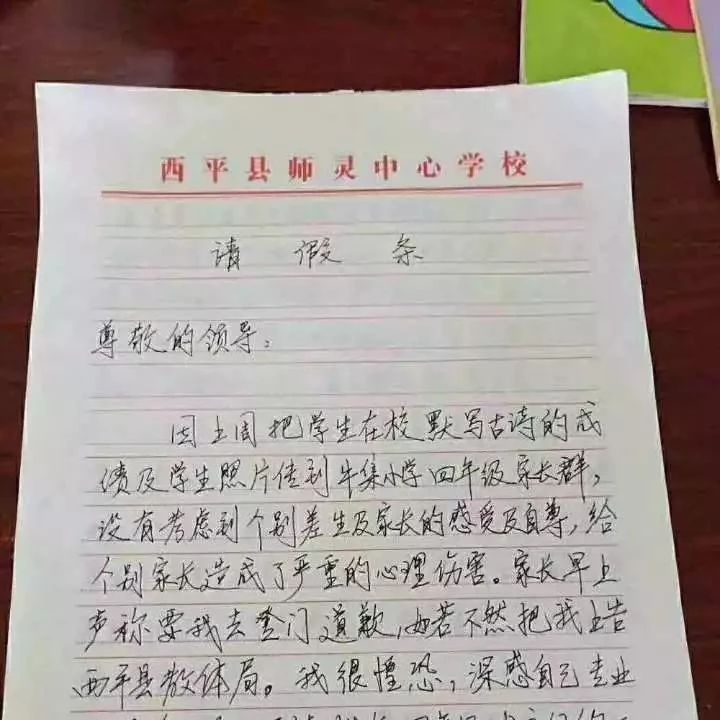 西平县师灵中心学校
请假条
尊敬的领导：
因上周把学生在校默写古诗的成
绩及学生照片传到牛集小学四年级家长群，
没有考虑到个别差生及家长的感受及自尊，给
个别家长造成了严重的心理伤害。家长早上
声称要我去登门道歉，如若不然把我上告
西平县教体局。我很惶恐，深感自己专业